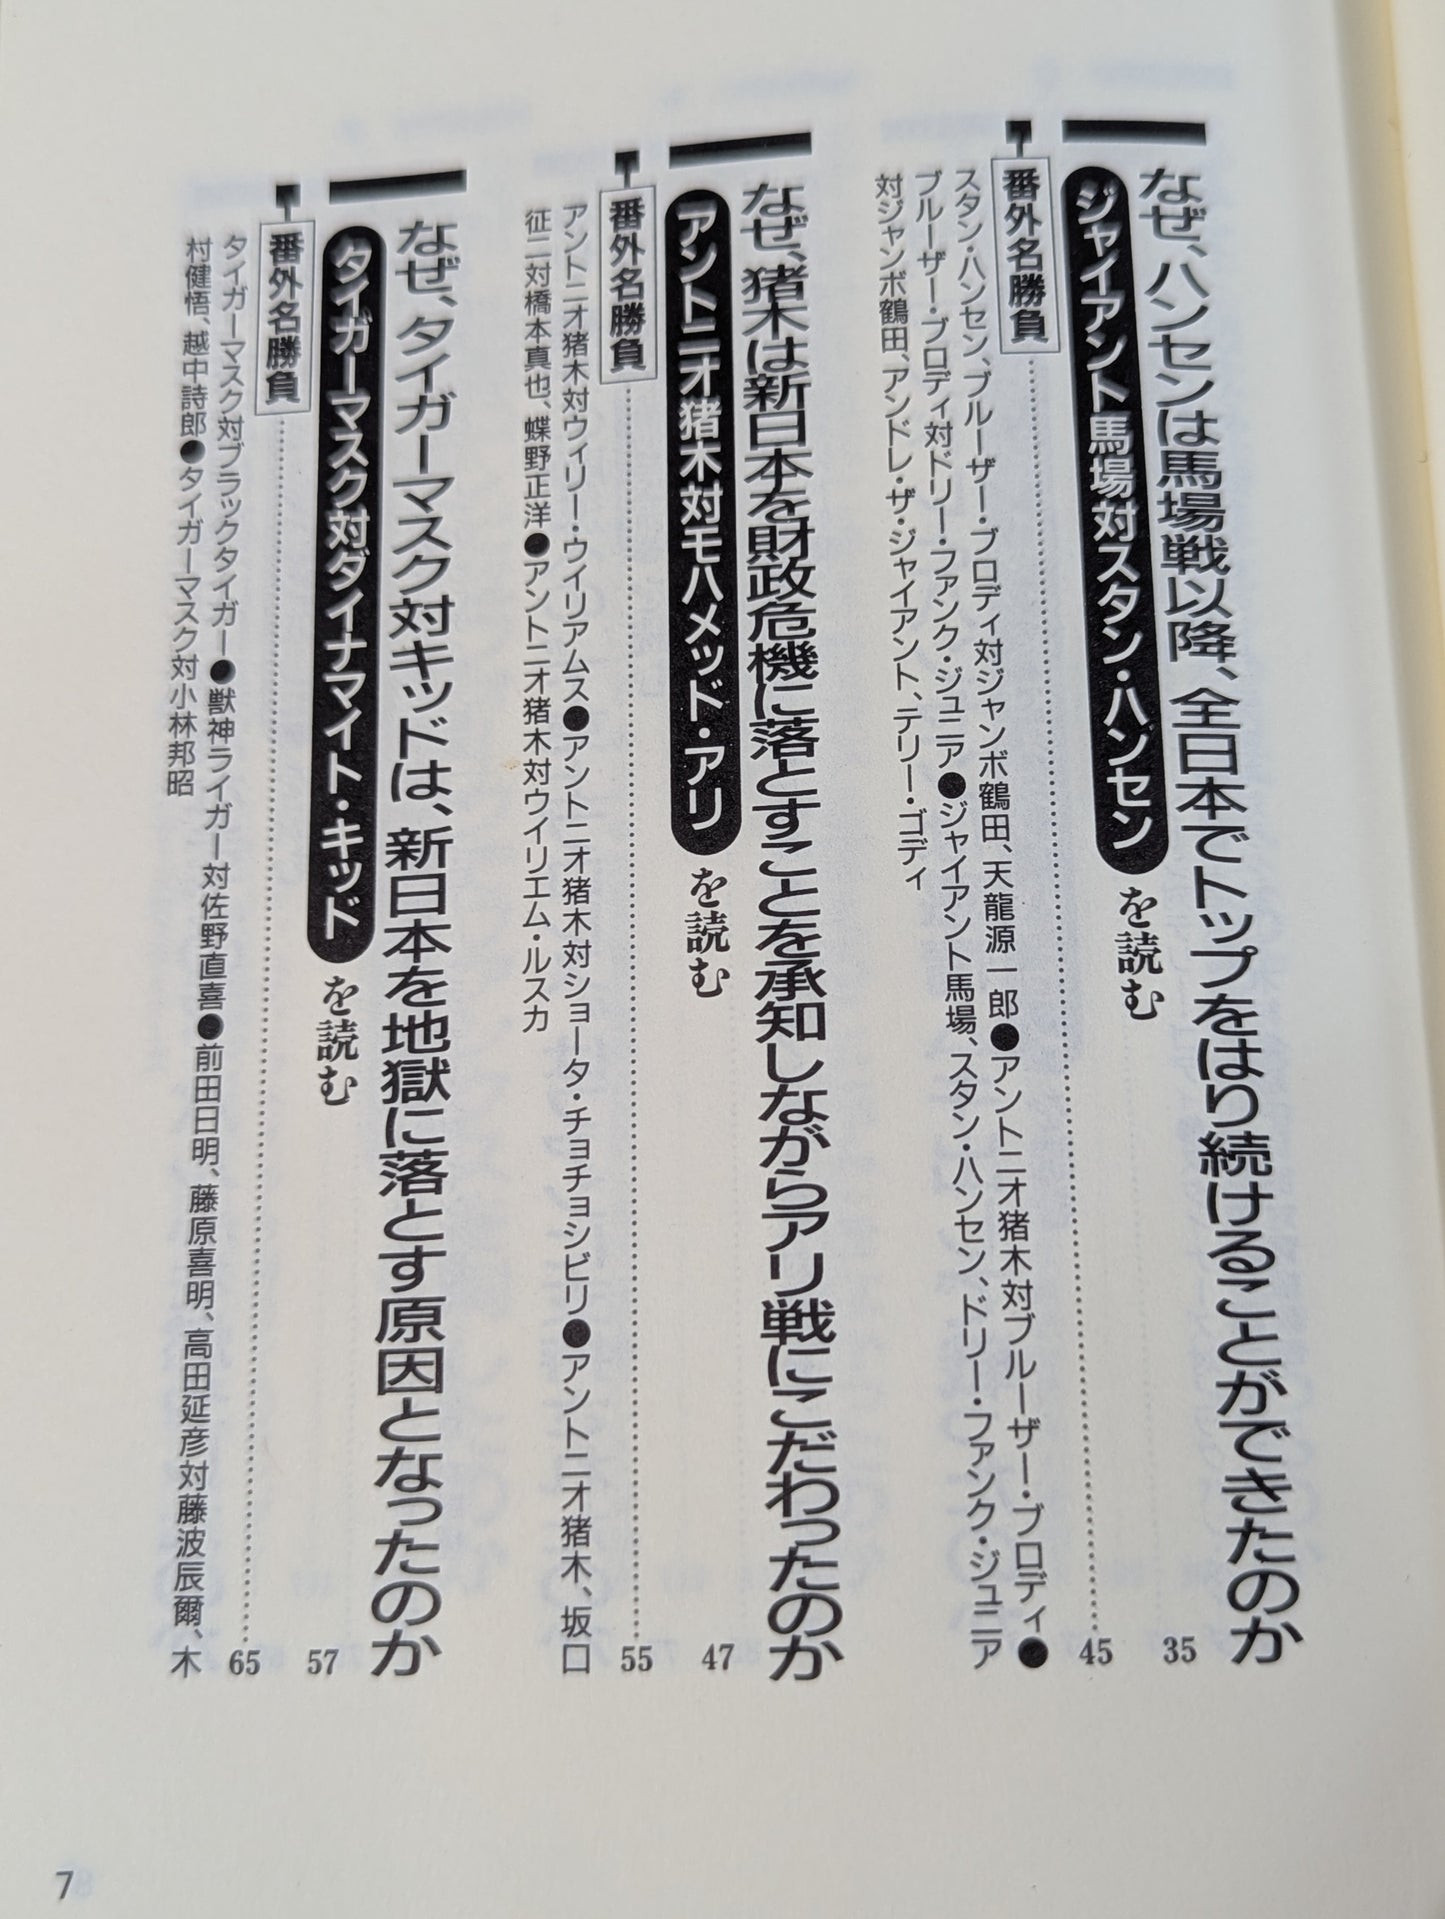 なぜ、ハンセンは馬場戦以降、全日本でトップをはり続けることができたのか
ジャイアント馬場対スタン・ハンセンを読む 35
番外名勝負 45
スタン・ハンセン、ブルーザー・ブロディ対ジャンボ鶴田、天龍源一郎●アントニオ猪木対ブルーザー・ブロディ●
ブルーザー・ブロディ対ドリー・ファンク・ジュニア●ジャイアント馬場、スタン・ハンセン、ドリー・ファンク・ジュニア
対ジャンボ鶴田、アンドレ・ザ・ジャイアント、テリー・ゴディ
なぜ、猪木は新日本を財政危機に落とすことを承知しながらアリ戦にこだわったのか
アントニオ猪木対モハメッド・アリを読む 47
番外名勝負 55
アントニオ猪木対ウィリー・ウイリアムス●アントニオ猪木対ショータ・チョチョシビリ●アントニオ猪木、坂口
征二対橋本真也、蝶野正洋●アントニオ猪木対ウイリエム・ルスカ
なぜ、タイガーマスク対キッドは、新日本を地獄に落とす原因となったのか
タイガーマスク対ダイナマイト・キッドを読む 57
番外名勝負 65
タイガーマスク対ブラックタイガー●獣神ライガー対佐野直喜●前田日明、藤原喜明、高田延彦対藤波辰爾、木
村健悟、越中詩郎●タイガーマスク対小林邦昭
7